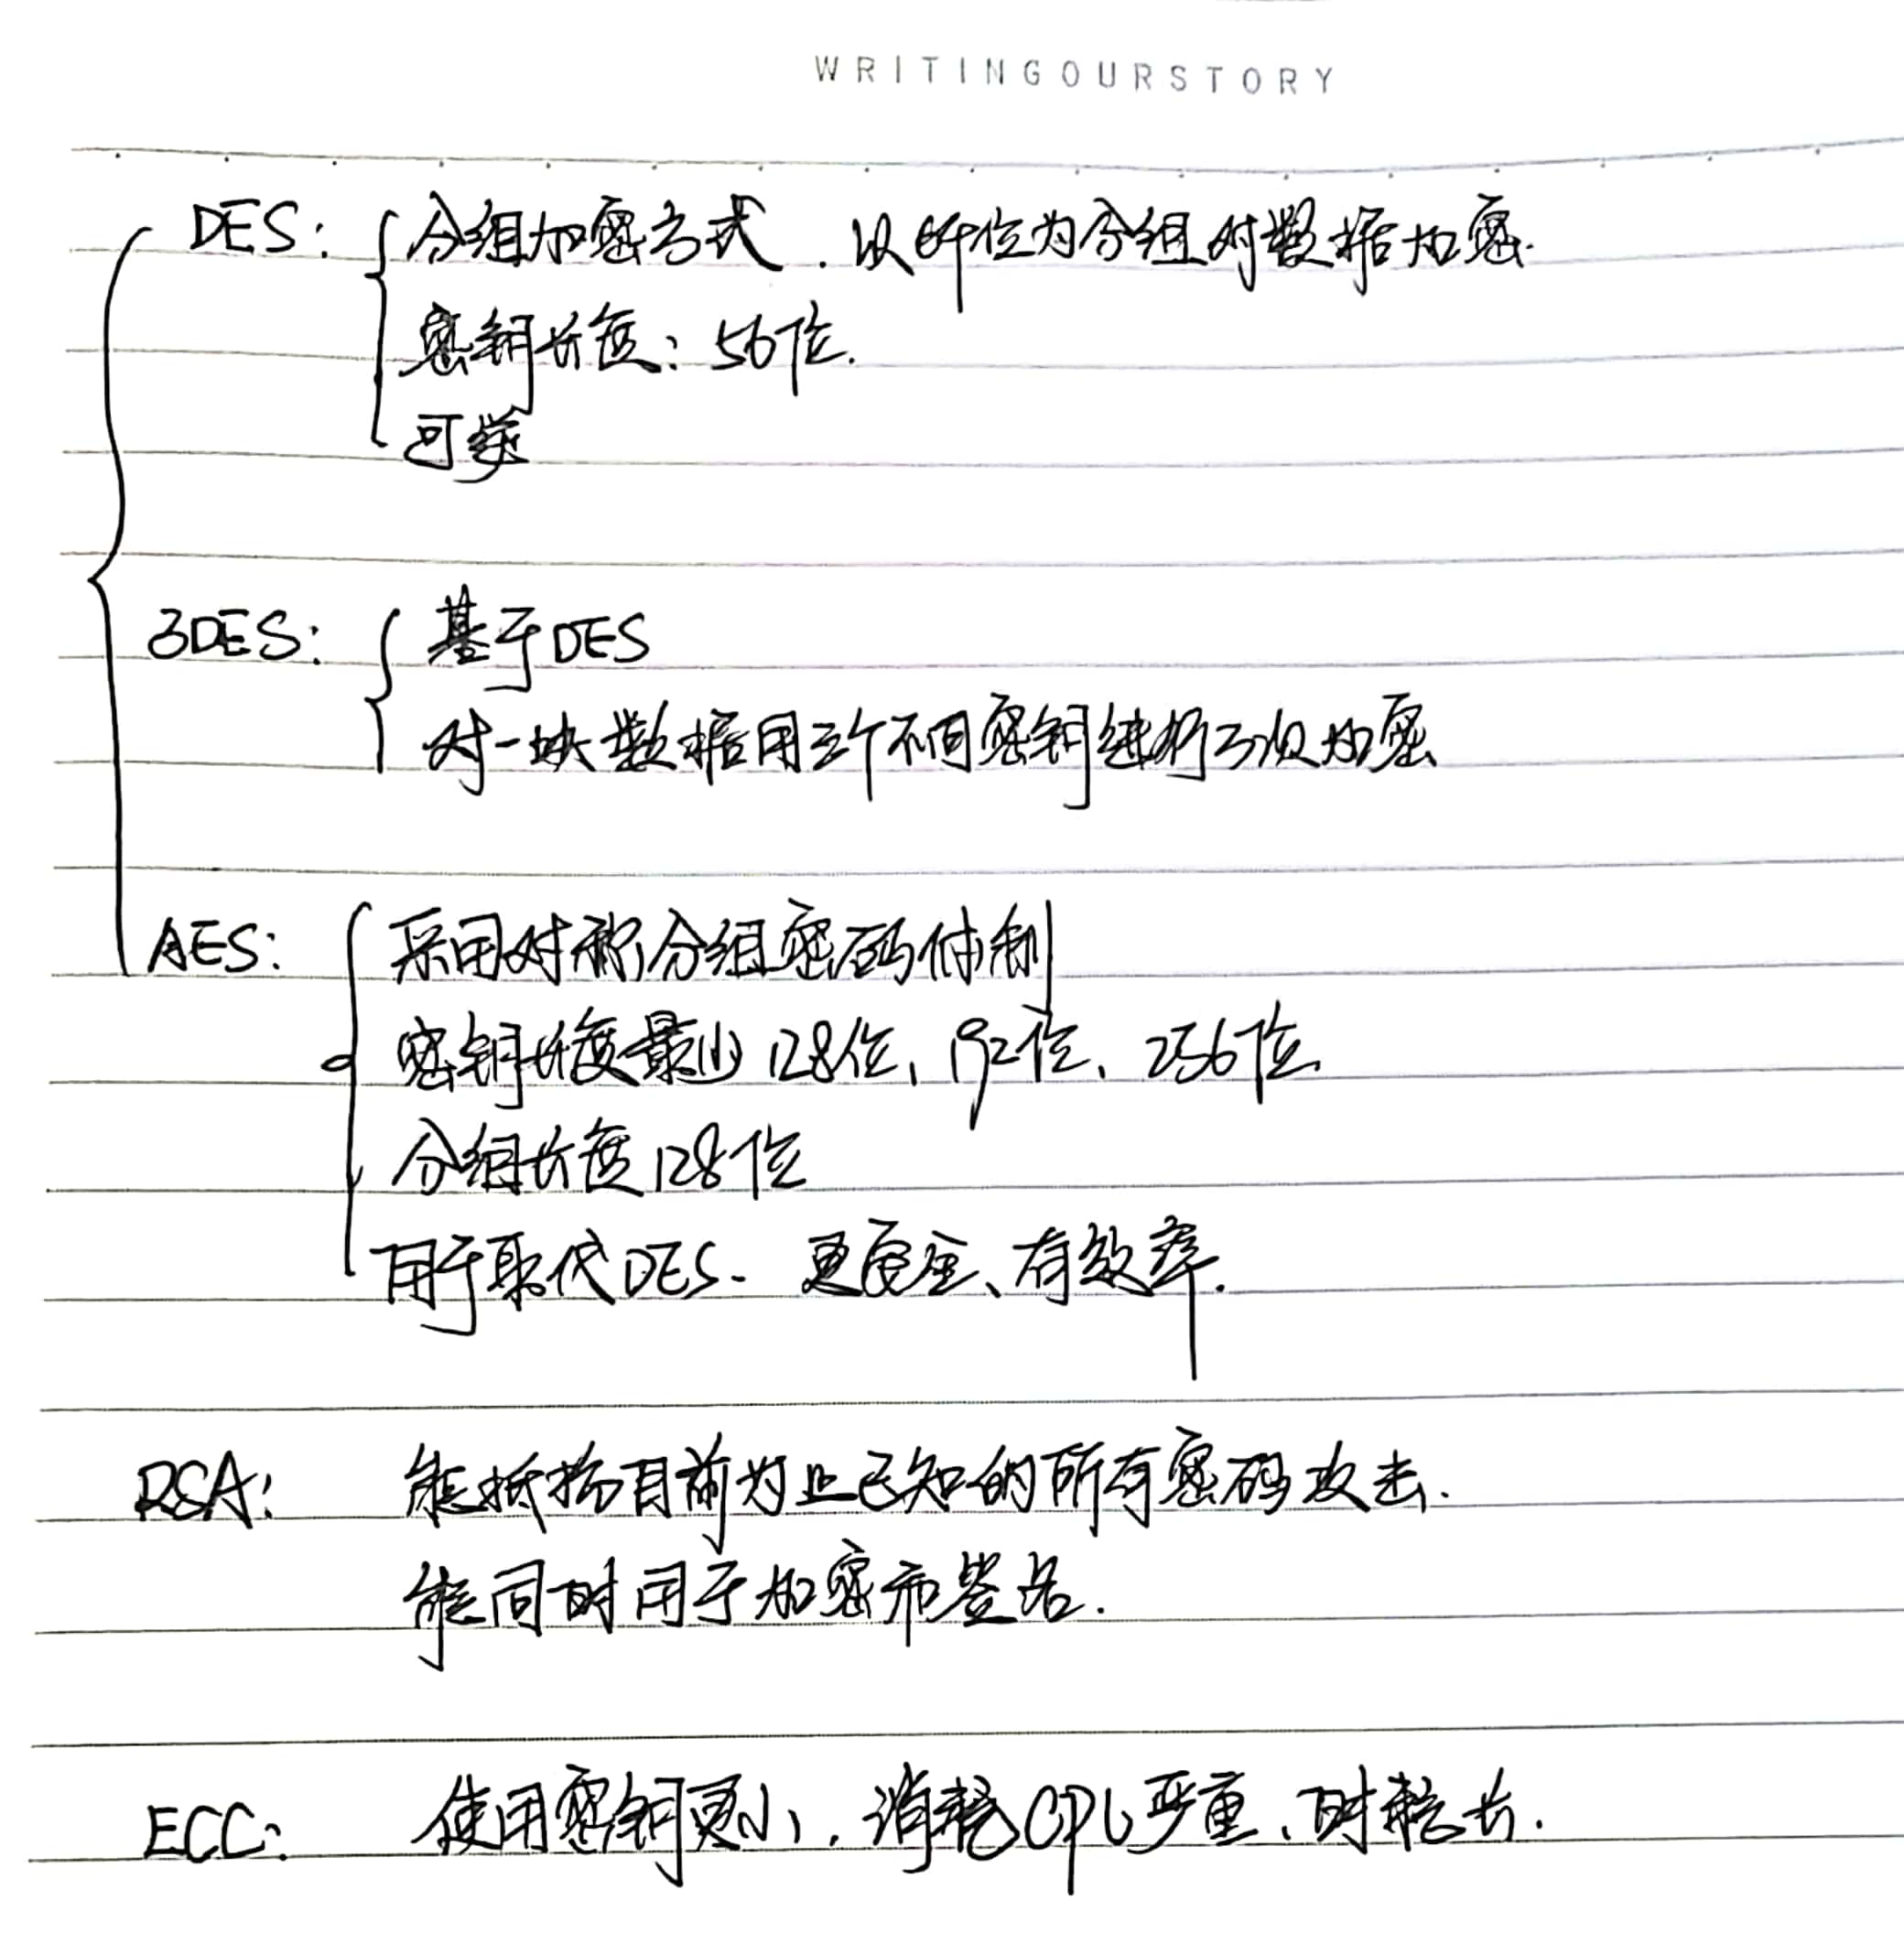 WRITINGOURSTORY
DES: 分组加密方式. 以64位为分组对数据加密.
密钥长度: 56位.
可逆
3DES: 基于DES
对一块数据用三个不同密钥进行三次加密
AES: 采用对称分组密码体制
密钥长度最少128位、192位、256位
分组长度128位
用于取代DES. 更安全、有效率.
RSA: 能抵抗目前为止已知的所有密码攻击.
能同时用于加密和签名.
ECC: 使用密钥更小, 消耗CPU严重、时耗长.